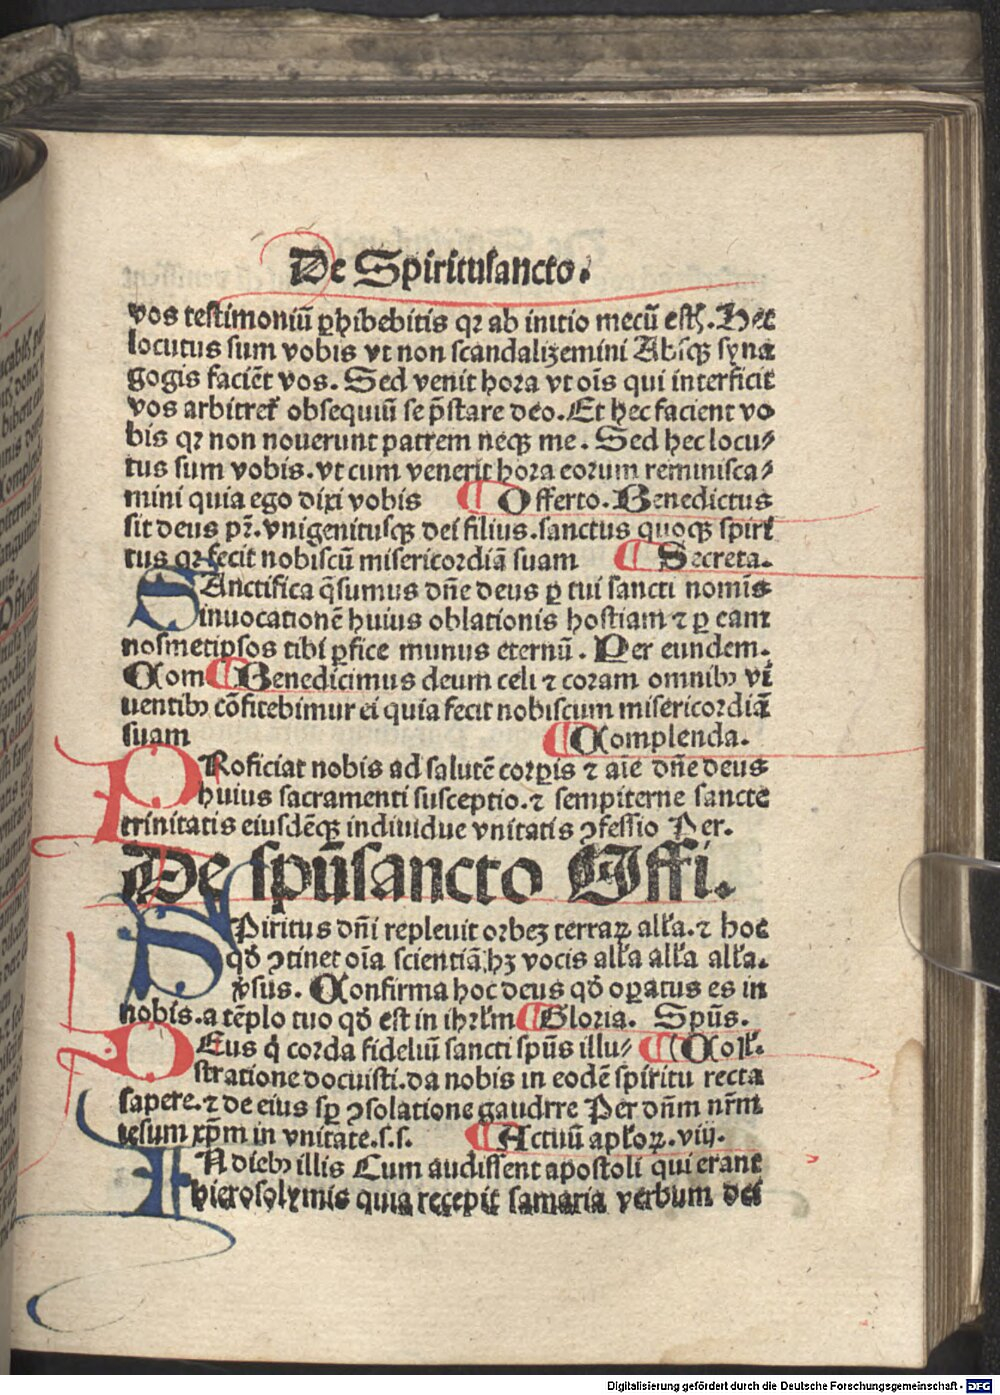 De Spiritusancto.
vos testimoniū ꝑhibebitis qꝛ ab initio mecū estꝭ. Hec
locutus sum vobis vt non scandalizemini Absqꝫ syna
gogis faciēt vos. Sed venit hora vt oīs qui interficit
vos arbitret᷑ obsequiū se p̄stare deo. Et hec facient vo
bis qꝛ non nouerunt patrem neqꝫ me. Sed hec locu⸗
tus sum vobis. vt cum venerit hora eorum reminisca⸗
mini quia ego dixi vobis ¶ Offerto. Benedictus
sit deus pr̄. vnigenitusqꝫ dei filius. sanctus quoqꝫ spiri
tus qꝛ fecit nobiscū misericordiā suam ¶ Secreta.
SAnctifica q̄sumus dn̄e deus ꝑ tui sancti nomīs
inuocationē huius oblationis hostiam ⁊ ꝑ eam
nosmetipsos tibi ꝑfice munus eternū. Per eundem.
Com ¶ Benedicimus deum celi ⁊ coram omnibꝰ vi
uentibꝰ cōfitebimur ei quia fecit nobiscum misericordiā
suam ¶ Complenda.
PRoficiat nobis ad salutē corꝑis ⁊ aīe dn̄e deus
huius sacramenti susceptio. ⁊ sempiterne sancte
trinitatis eiusdēqꝫ indiuidue vnitatis ꝯfessio Per.
De spūsancto Offi.
SPiritus dn̄i repleuit orbeꝫ terraꝝ all'a. ⁊ hoc
qd̄ ꝯtinet oīa scientiā hꝫ vocis all'a all'a all'a.
v̄sus. Confirma hoc deus qd̄ oꝑatus es in
nobis. a tēplo tuo qd̄ est in ihrl'm ¶ Gloria. Spūs.
DEus q̇ corda fideliū sancti spūs illu⸗ ¶ Coll'.
stratione docuisti. da nobis in eodē spiritu recta
sapere. ⁊ de eius sꝑ ꝯsolatione gaudrre Per dn̄m nr̄m
iesum xp̄m in vnitate. s. s. ¶ Actuū apl'oꝝ. viij.
IN diebꝰ illis Cum audissent apostoli qui erant
hierosolymis quia recepit samaria verbum dei
Digitalisierung gefördert durch die Deutsche Forschungsgemeinschaft - DFG